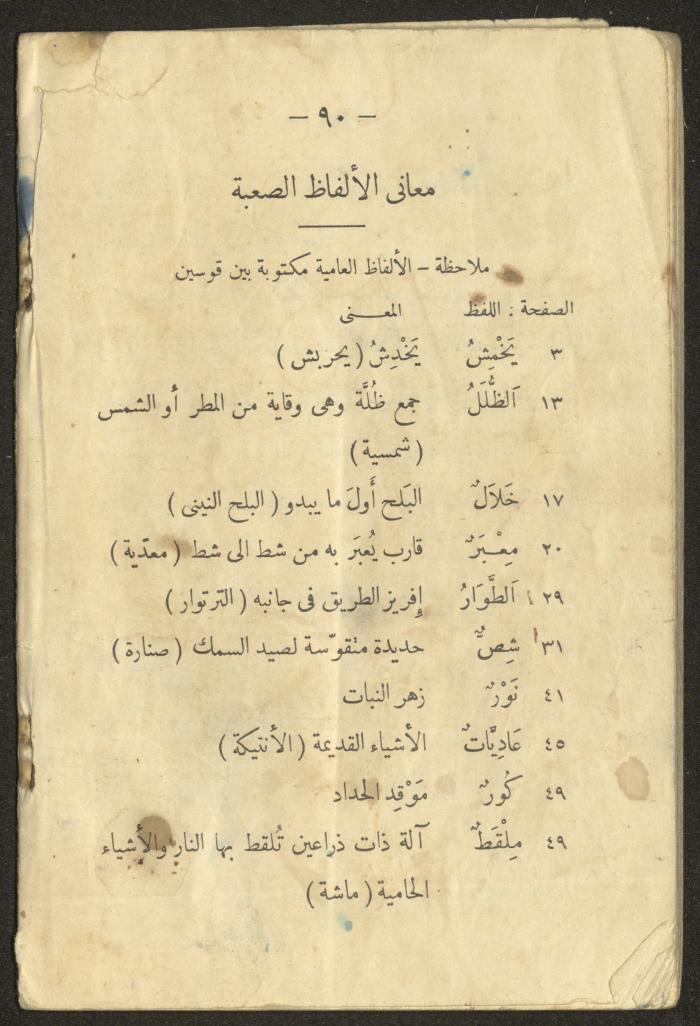 — ٩٠ —
معانى الألفاظ الصعبة
ملاحظة — الألفاظ العامية مكتوبة بين قوسين
الصفحة : اللفظ المعـــنى
٣ يَخْمِشُ يَخْدِشُ ( يخربش )
١٣ اَلظُّلَلُ جمع ظُلَّة وهى وقاية من المطر أو الشمس
( شمسية )
١٧ خَلَالٌ البَلح أَولَ ما يبدو ( البلح النينى )
٢٠ مِعْـبَرٌ قارب يُعبَر به من شط الى شط ( معدّية )
٢٩ اَلطَّوَارُ إفريز الطريق فى جانبه ( الترتوار )
٣١ شِصٌّ حديدة متقوّسة لصيد السمك ( صنارة )
٤١ نَوْرٌ زهر النبات
٤٥ عَادِيَّاتٌ الأشياء القديمة ( الأنتيكة )
٤٩ كُورٌ مَوْقِد الحداد
٤٩ مِلْقَطٌ آلة ذات ذراعين تُلقط بها النار والأشياء
الحامية ( ماشة )